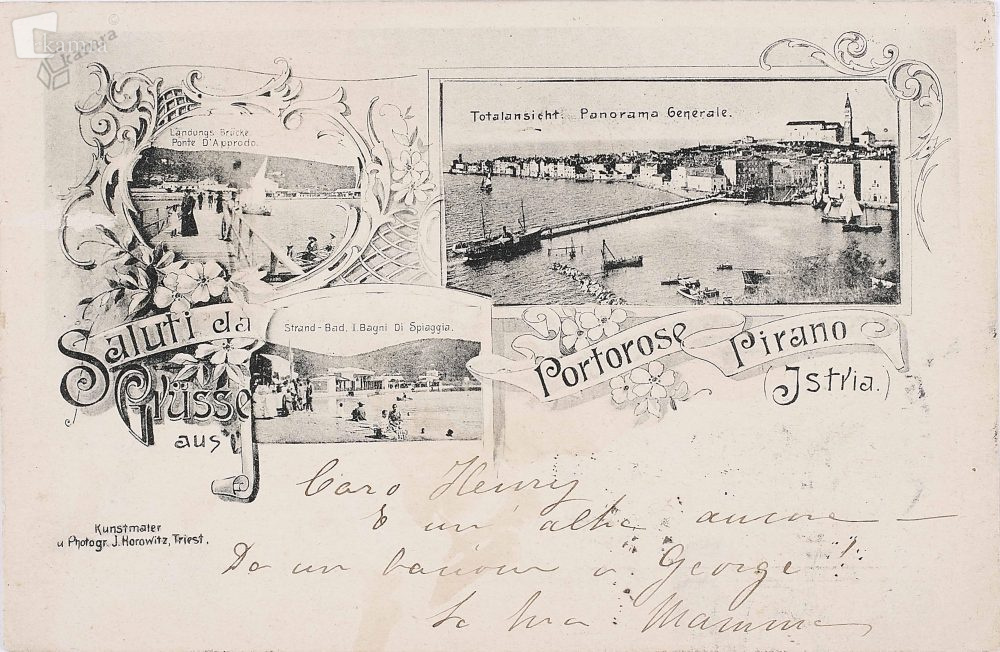 kamra
kamra
Landungs Brücke.
Ponte D'Approdo.
Totalansicht. Panorama Generale.
Strand-Bad. I. Bagni Di Spiaggia.
Saluti da
Grüsse
aus
Portorose
Pirano
(Istria.)
Kunstmaler
u Photogr. J. Horowitz, Triest.
Caro Henry
E un' altra ancora —
Da un a George!
la tua Mamma